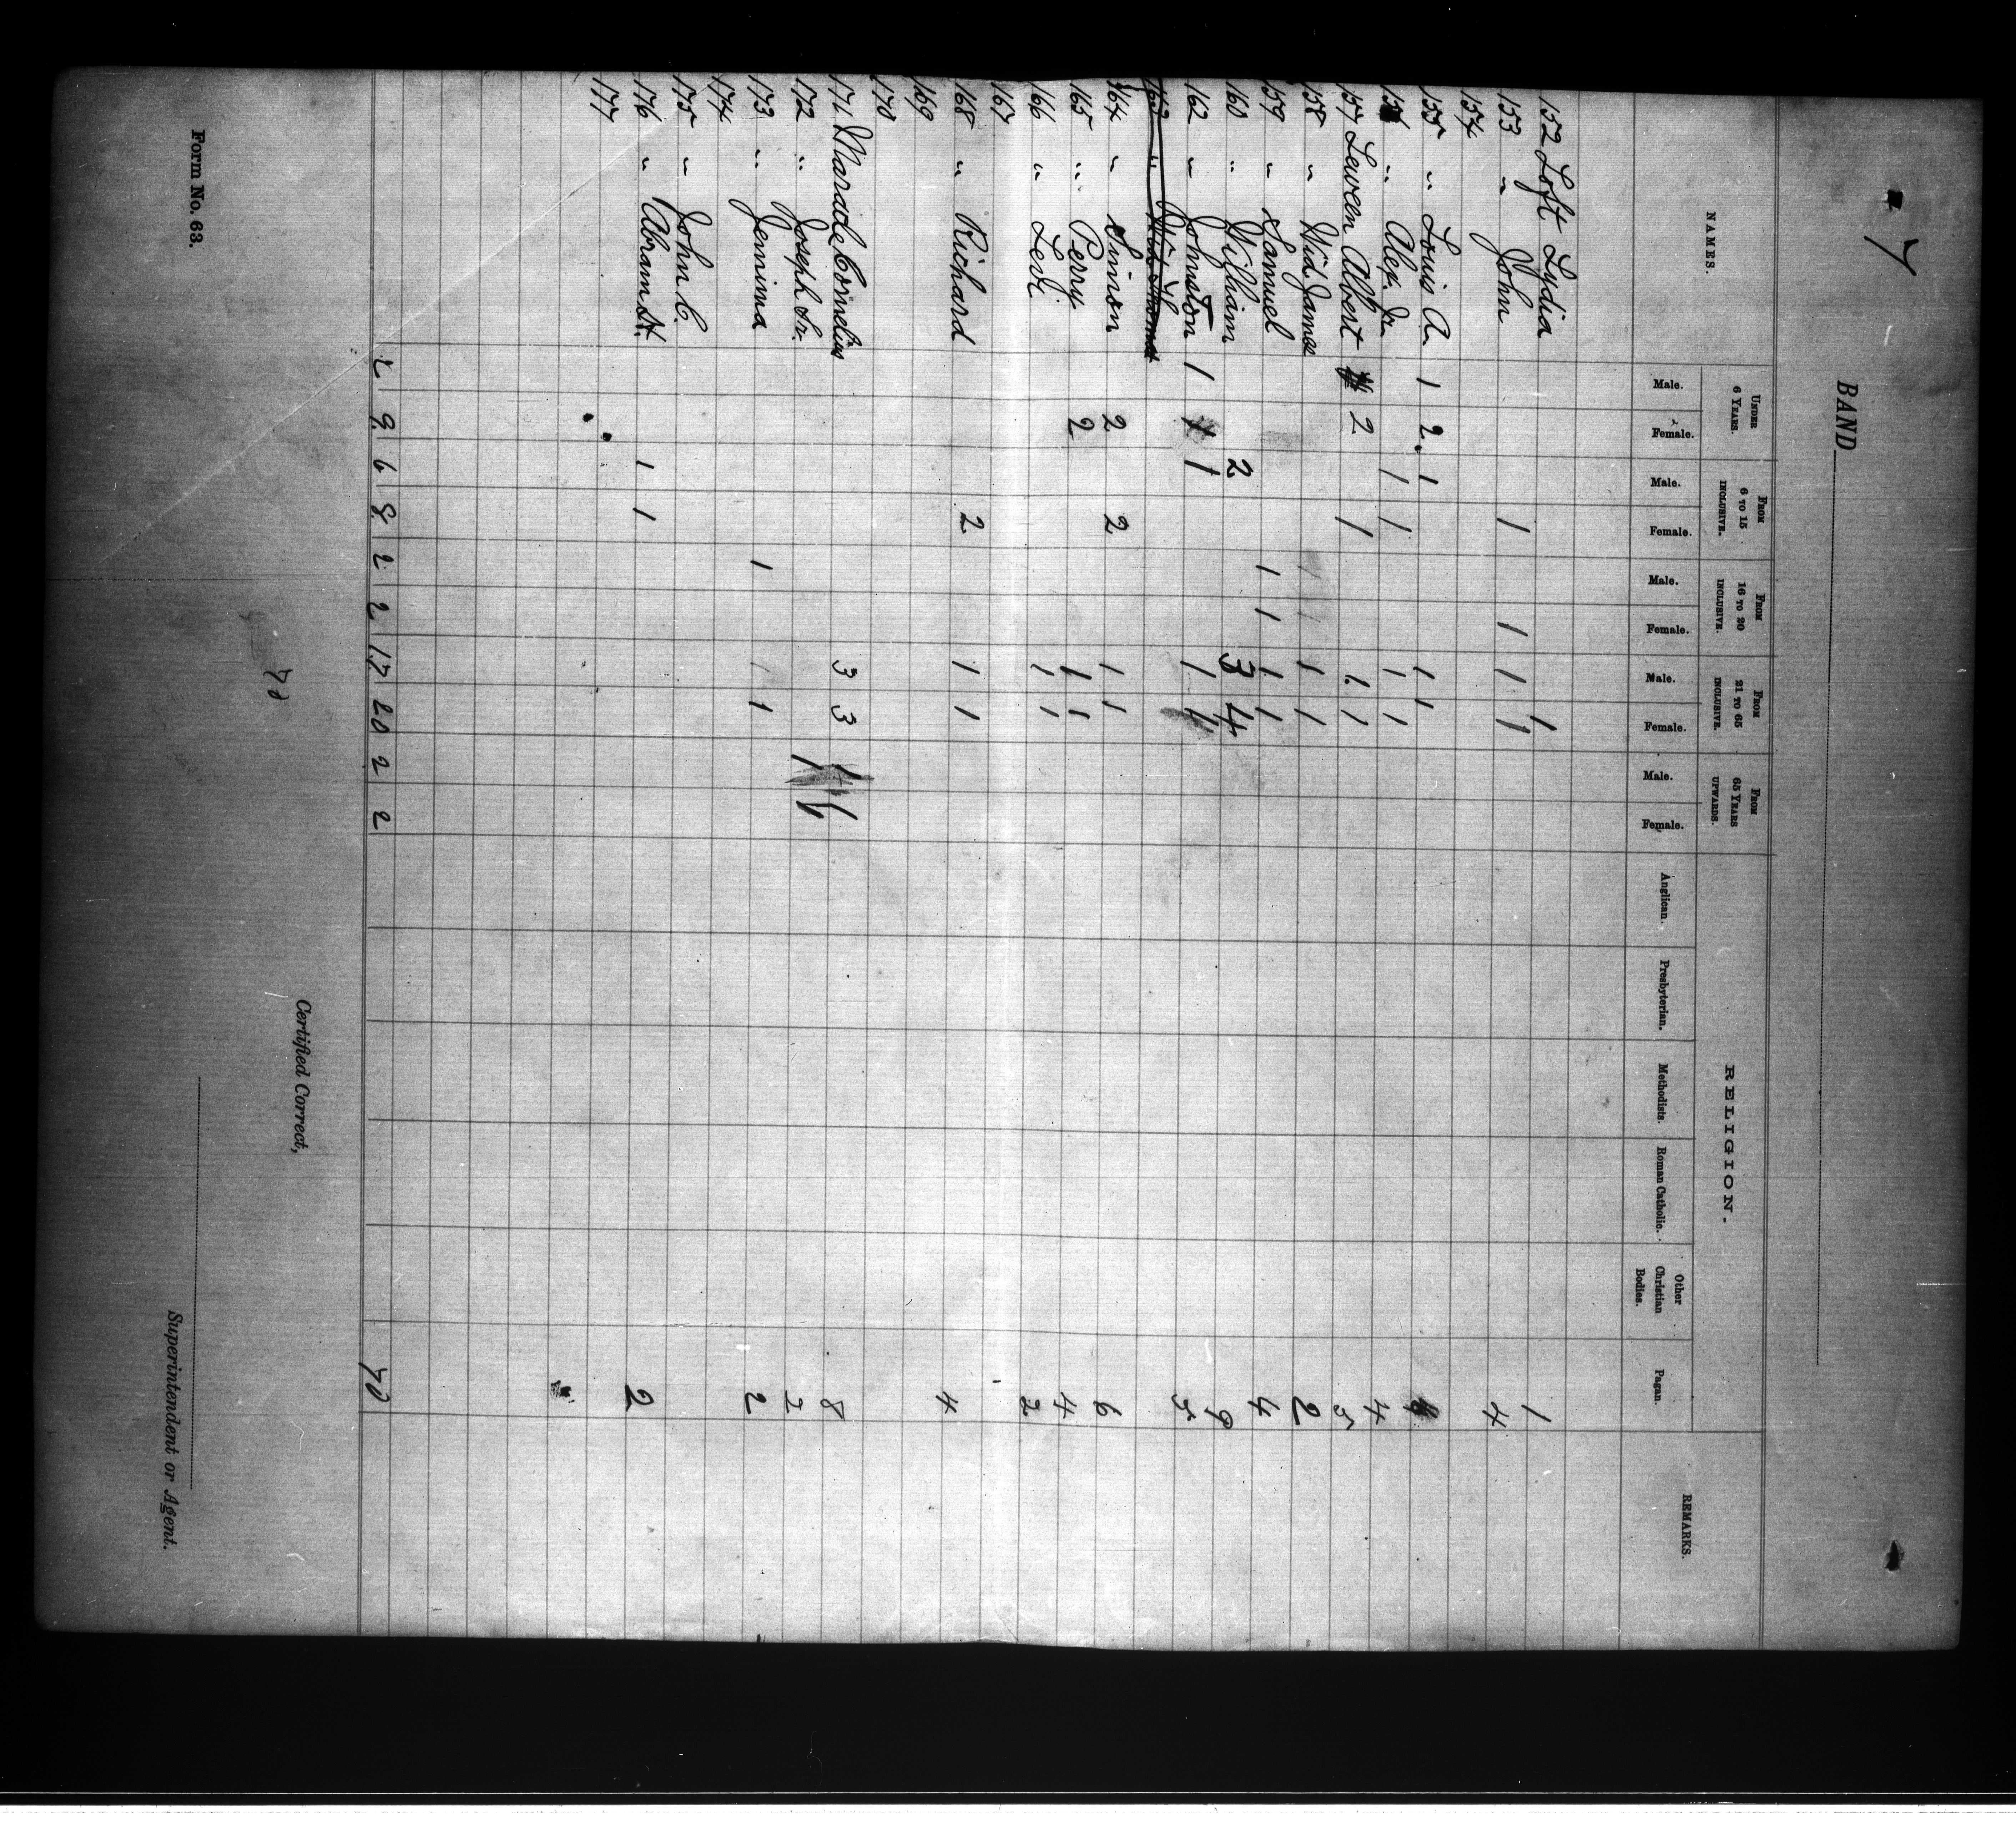 7
BAND
NAMES.
UNDER 6 YEARS.
FROM 6 TO 15 INCLUSIVE.
FROM 16 TO 20 INCLUSIVE.
FROM 21 TO 65 INCLUSIVE.
FROM 65 YEARS UPWARDS.
RELIGION.
REMARKS.
Male. Female. Male. Female. Male. Female. Male. Female. Male. Female. Anglican. Presbyterian. Methodists. Roman Catholic. Other Christian Bodies. Pagan.
152 Loft Lydia 1 1
153 " John 1 1 1 1 4
154
155 " Louis A 1 2 1 1 1
" Alex. Jr 1 1 1 1 4
157 Albert 2 1 1 1 5
158 " Wid. James 1 1 2
159 " Samuel 1 1 1 1 4
160 " William 2 3 4 9
162 " Johnston 1 1 1 5
164 " Simson 2 2 1 1 6
165 " Perry 2 1 1 4
166 " Levi 1 1 2
167
168 " Richard 2 1 1 4
169
170
171 Maracle Cornelius 3 3 1 1 8
172 " Joseph Sr. 1 1 2
173 " Jemima 1 1 2
174
175 " John C.
176 " Abram St. 1 1 2
177
2 9 6 8 2 2 17 20 2 2 70
70
Certified Correct,
Superintendent or Agent.
Form No. 63.